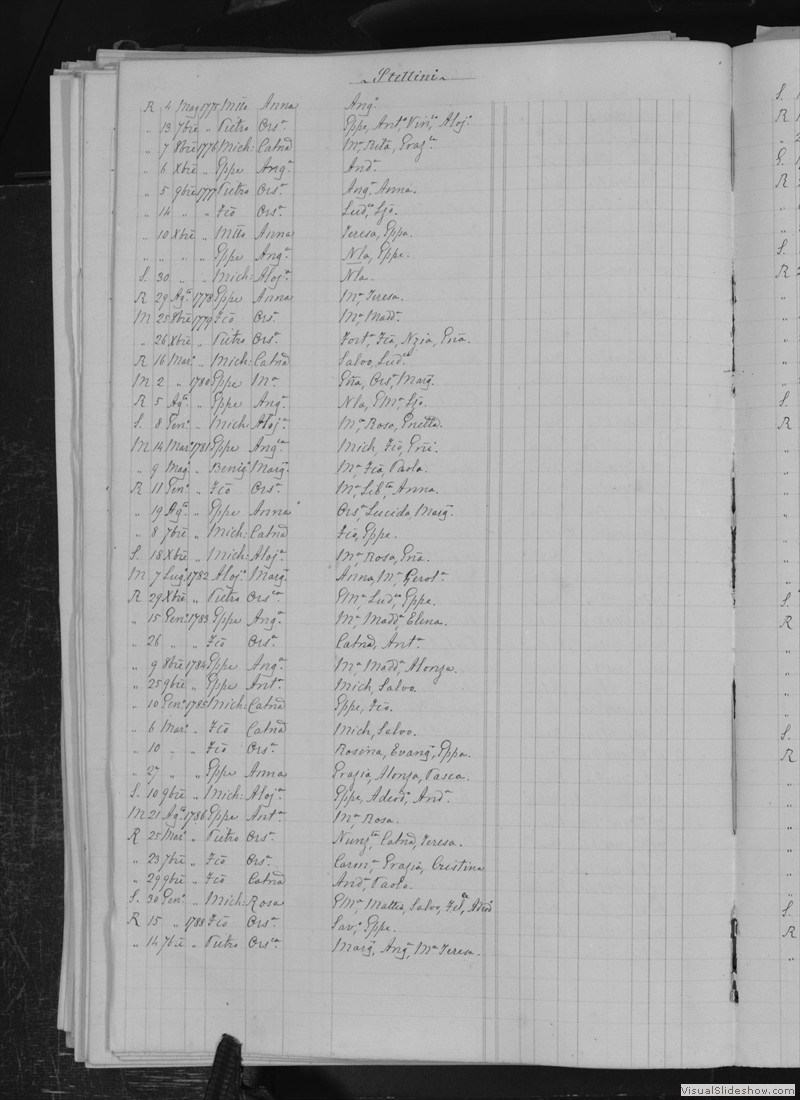 Stellini
R 4 Mag 1775 Mtto Anna Ang.ª
„ 13 7bre „ Pietro Ors.ª Eppe, Ant.º Vin.º Aloj.º
„ 7 8bre 1776 Mich: Catnā M.ª Rita, Graz.ª
„ 6 Xbre „ Eppe Ang.ª And.ª
„ 5 9bre 1777 Pietro Ors.ª Ang.ª Anna.
„ 14 „ „ Fco Ors.ª Lud.ª Ljo.
„ 10 Xbre „ Mtto Anna Teresa, Eppa.
„ „ „ „ Eppe Ang.ª Nla, Eppe.
S. 30 „ „ Mich: Aloj.ª Nla.
R 29 Ag.º 1778 Eppe Anna M.ª Teresa.
M 25 8bre 1779 Fco Ors.ª M.ª Madd.ª
„ 26 Xbre „ Pietro Ors.ª Fort.ª Fca, Nzia, Gña.
R 16 Mar.º „ Mich: Catnā Salvo, Lud.ª
M 2 „ 1780 Eppe M.ª Gña, Ors.ª Marg.ª
R 5 Ag.º „ Eppe Ang.ª Nla, EM.ª Ljo.
S. 8 Gen.º „ Mich: Aloj.ª M.ª Rosa,
M 14 Mar.º 1781 Eppe Ang.ª Mich, Fco, Gñi.
„ 9 Mag.º „ Benig.º Marg.ª M.ª Fca, Paola.
R 11 Gen.º „ Fco Ors.ª M.ª Lib.ta Anna.
„ 19 Ag.º „ Eppe Anna Ors.ª Lucida, Marg.ª
„ 8 7bre „ Mich: Catnā Fco, Eppe.
S. 18 Xbre „ Mich: Aloj.ª M.ª Rosa, Gña.
M 7 Lug.º 1782 Aloj.º Marg.ª Anna, M.ª Gerol.ª
R 29 Xbre „ Pietro Ors.ª EM.ª Lud.ª Eppe.
„ 15 Gen.º 1783 Eppe Ang.ª M.ª Madd.ª Elena.
„ 26 „ „ Fco Ors.ª Catnā, Ant.ª
„ 9 8bre 1784 Eppe Ang.ª M.ª Madd.ª Alonza.
„ 25 9bre „ Eppe Ant.ª Mich, Salvo.
„ 10 Gen.º 1785 Mich: Catnā Eppe, Fco.
„ 6 Mar.º „ Fco Catnā Mich, Salvo.
„ 10 „ „ Fco Ors.ª Rosina, Evang.ª Eppa.
„ 27 „ „ Eppe Anna Grazia, Alonza, Pasca.
S. 10 9bre „ Mich: Aloj.ª Eppe, Adeod.º And.ª
M 21 Ag.º 1786 Eppe Ant.ª M.ª Rosa.
R 25 Mar.º „ Pietro Ors.ª Nunz.ta Catnā, Teresa.
„ 23 7bre „ Fco Ors.ª Carm.ª Grazia, Cristina
„ 29 9bre „ Fco Catnā And.ª Paolo.
S. 30 Gen.º „ Mich: Rosa EM.ª Mattia, Salvo,
R 15 „ 1788 Fco Ors.ª Sav.ª Eppe.
„ 14 7bre „ Pietro Ors.ª Marg.ª Ang.ª M.ª Teresa.
VisualSlideshow.com